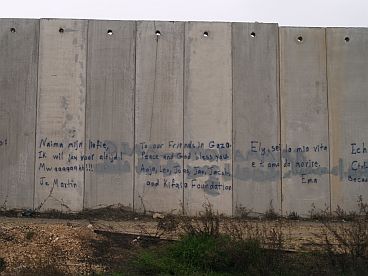 Naima mijn liefje,
Ik wil jou voor altijd!
Mwaaaaahh!!!
Je Martin
To our Friends in Gaza.
Peace and God bless you
Anja, Leo, Joop, Jan, Jacob
and Kifaia Foundation
Ely, sei la mia vita
e ti amo da morire.
Ema
Ich
Beca